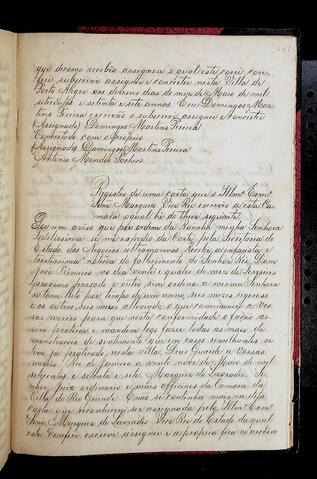 que dicemo recebio assignou o qual este corri con-
feri subscrivi assignei e concertei nesta Villa de
Porto Alegre aos dezaseis dias do mez de Maio de mil
setecentos e setenta e sete annos. Eu Domingos Mar-
tins Pereira escrivão o subscrevi assignei e concertei
(Assignado) Domingos Martins Pereira
Concertado com o proprio
(Assignado) Domingos Martins Pereira
Antonio Mendes
Registo de uma carta que o Illmo Exmo
Snr Marquez Vice Rei escreveo a esta Ca-
mara a qual é do theor seguinte
Por um aviso que por ordem da Rainha minha Senhora
Fidelissima se me expedio da Corte pela Secretaria de
Estado de Negocios Ultramarinos recebi a infausta e
tristissima noticia do falescimento do Senhor Rei Dom
José Primeiro no dia vinte e quatro do mez de Fevereiro
proximo passado e outro sim ordena a mesma Senhora
se tome luto por tempo de um anno, seis mezes rigoroso
e os outros seis mezes aliviado o que communico a Vos-
sas mercês para que nesta conformidade o fação as-
sim praticar e mandem logo fazer todas as mais de-
monstracois de sentimento que em casos similhantes se
tem já praticado nesta villa. Deus Guarde a Vossas
mercês. Rio de Janeiro a vinte nove de Maio de mil
setecentos e setenta e sete. Marquez de Lavradio. Se-
nhor Juiz ordinario e mais officiaes da Camara da
Villa do Rio Grande. E não se continha mais na dita
Carta que reconheci ser assignada pelo Illmo Exmo
Snr Marquez de Lavradio Vice Rei do Estado da qual
este conferi escrevi assignei e a propria fica no archivo